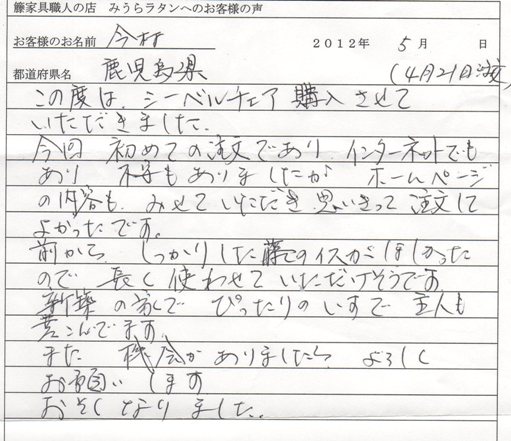 籐家具職人の店　みうらラタンへのお客様の声
お客様のお名前　今村　２０１２年　５月　日
都道府県名　鹿児島県　(4月21日注文
この度は、シーベルチェア購入させて
いただきました。
今回　初めての注文であり　インターネットでも
あり　不安もありましたが　ホームページ
の内容も、みせていただき思いきって注文して
よかったです。
前から　しっかりした籐のイスがほしかった
ので　長く使わせていただけそうです
新築の家で　ぴったりのいすで　主人も
喜こんでます。
また　機会がありましたら、よろしく
お願いします
おそくなりました。